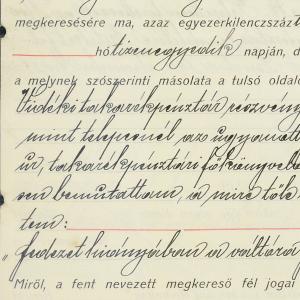 megkeresésére ma, azaz egyezerkilenczszáz
hó tizenegyedik napján, d
a melynek szószerinti másolata a tulsó oldalo
Vidéki takarékpénztár részvény
mint telepesnél az ugyanott
úr, takarékpénztári főkönyvelő
sen bemutattam, a mire tőle
tem:
„fedezet hiányában a váltóra
Miről, a fent nevezett megkereső fél jogai